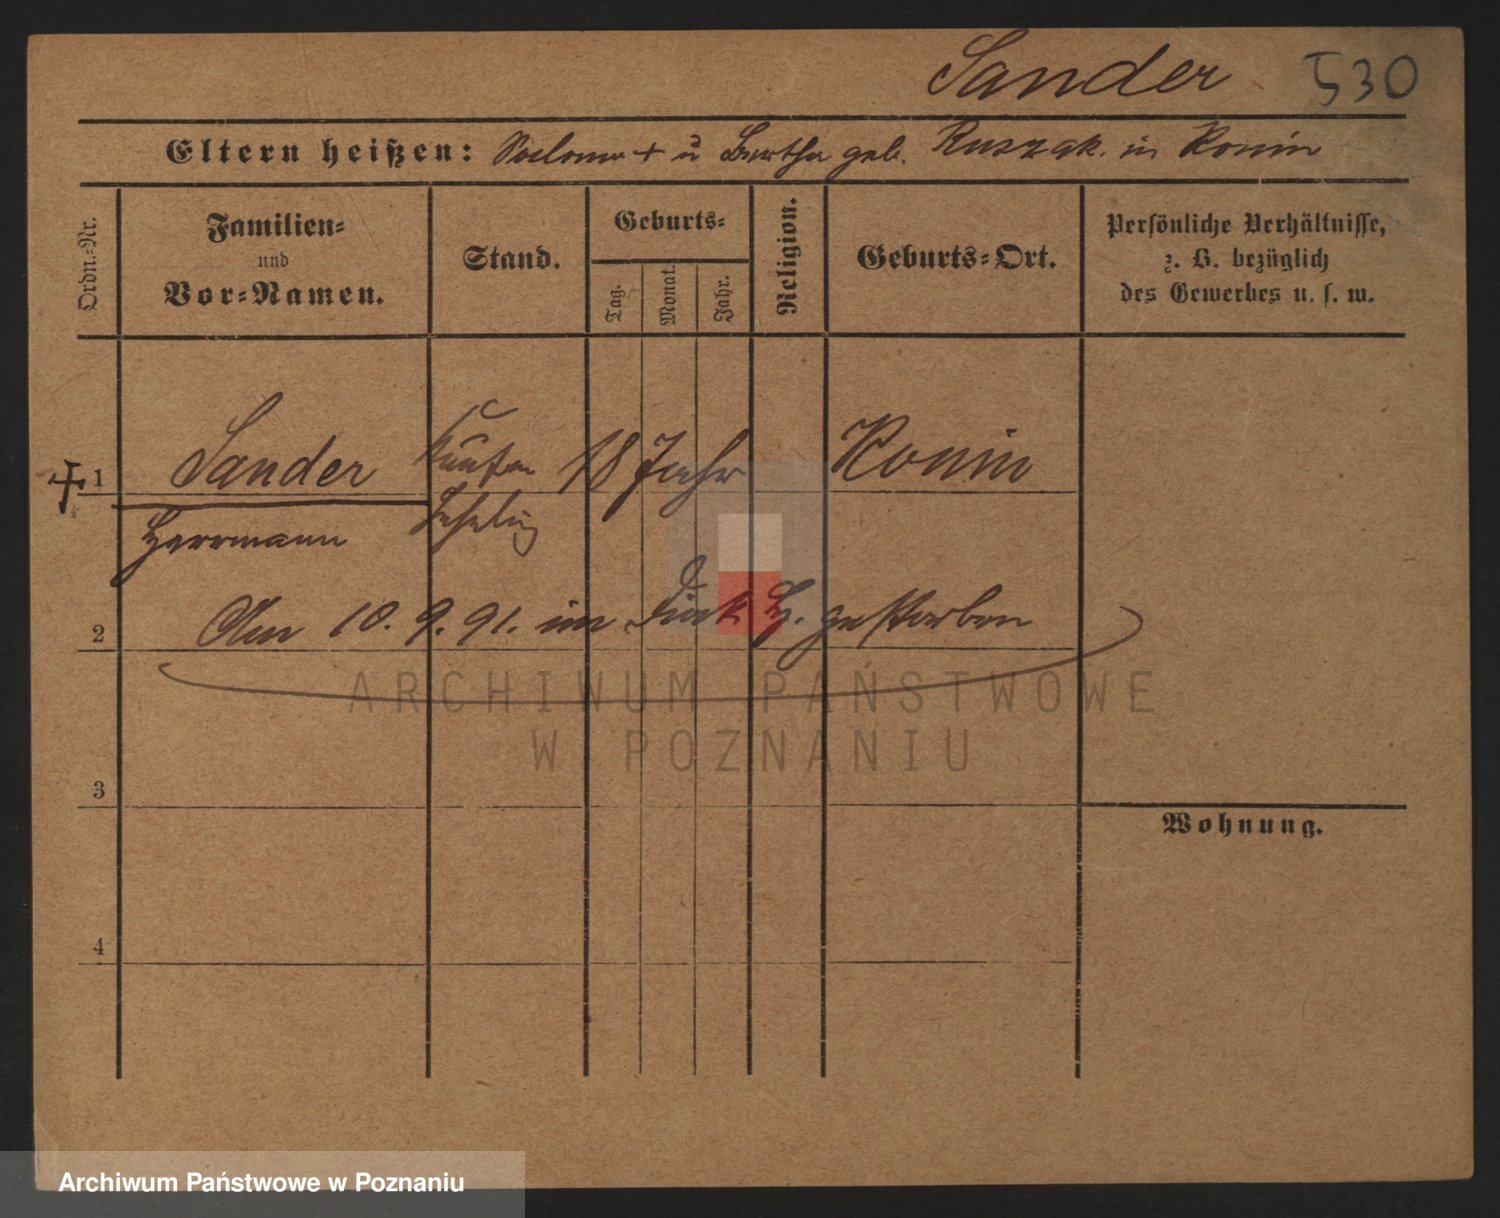 Sander 530
Eltern heißen: Salomo + u Bertha geb. Ruszak. in Konin
Ordn.-Nr.
Familien-
und
Vor-Namen.
Stand.
Geburts-
Tag.
Monat.
Jahr.
Religion.
Geburts-Ort.
Persönliche Verhältnisse,
z. B. bezüglich
des Gewerbes u. s. w.
+ 1 Sander Kaufm 18 Jahr Konin
Herrmann Lehrling
2 Am 10. 9. 91. im gestorben
3
4
Wohnung.
ARCHIWUM PAŃSTWOWE
W POZNANIU
Archiwum Państwowe w Poznaniu